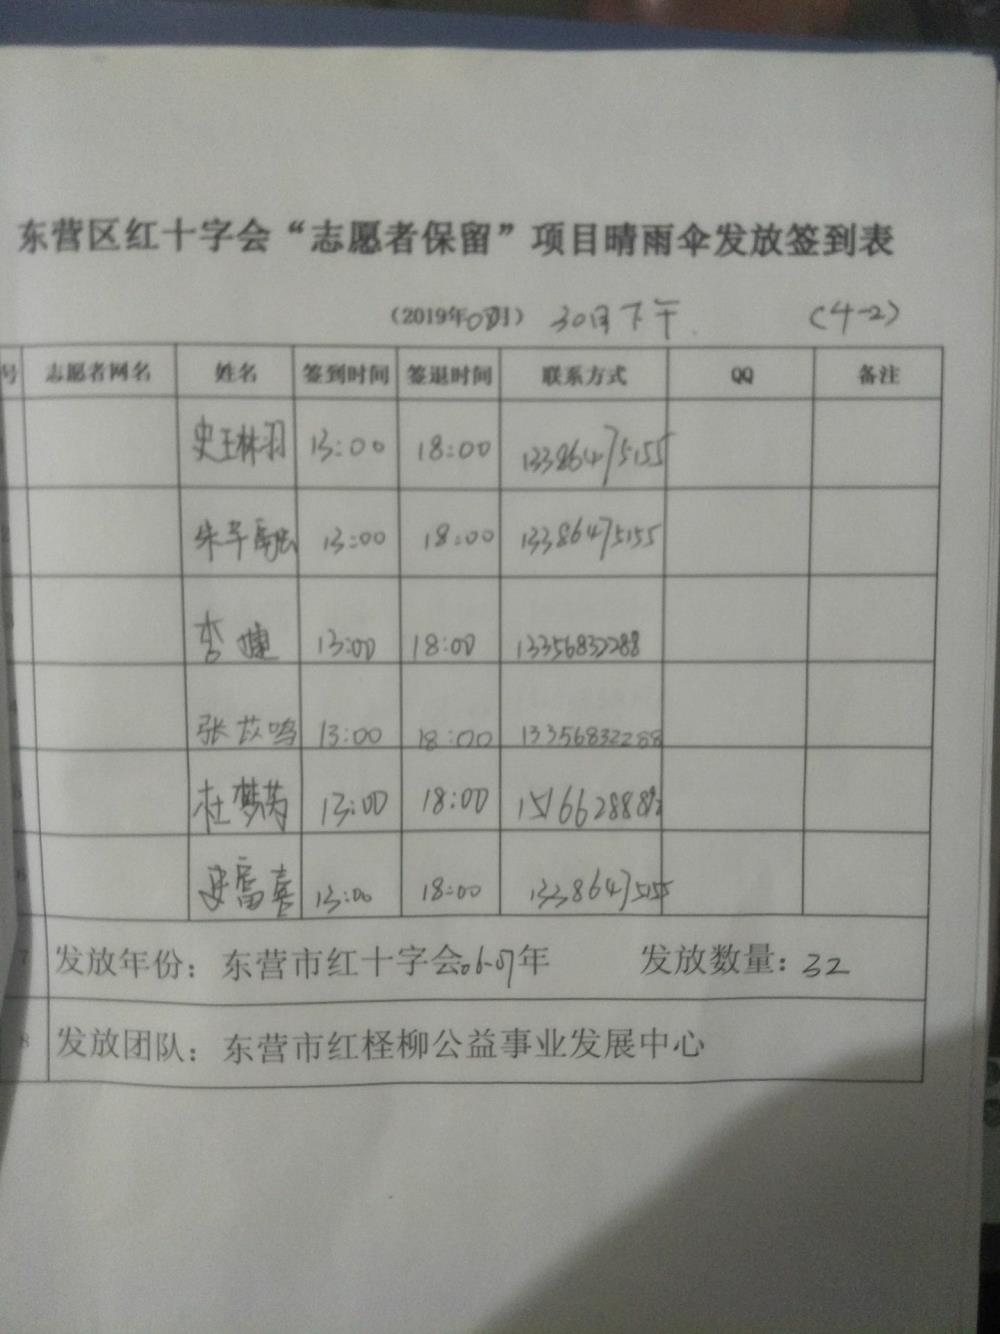 东营区红十字会“志愿者保留”项目晴雨伞发放签到表
（2019年07月） 30日下午 （4-2）
号 志愿者网名 姓名 签到时间 签退时间 联系方式 QQ 备注
史王林羽 13:00 18:00 13386475155
2 朱 13:00 18:00 13386475155
3 李婕 13:00 18:00 13356832288
张苡鸣 13:00 18:00 13356832288
5 杜梦 13:00 18:00
6 13:00 18:00 13386475155
7 发放年份：东营市红十字会06-07年 发放数量：32
8 发放团队：东营市红柽柳公益事业发展中心